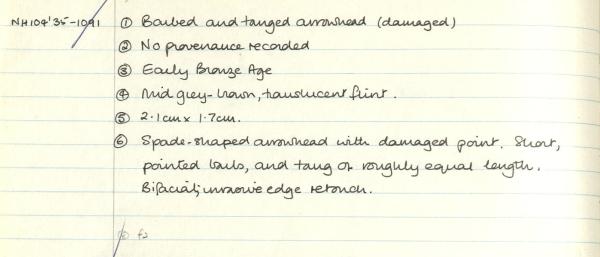 NH104'35-1091 ① Barbed and tanged arrowhead (damaged)
② No provenance recorded
③ Early Bronze Age
④ Mid grey-brown, translucent flint.
⑤ 2.1cm x 1.7cm.
⑥ Spade-shaped arrowhead with damaged point. Short,
pointed barbs, and tang of roughly equal length.
Bifacial, invasive edge retouch.